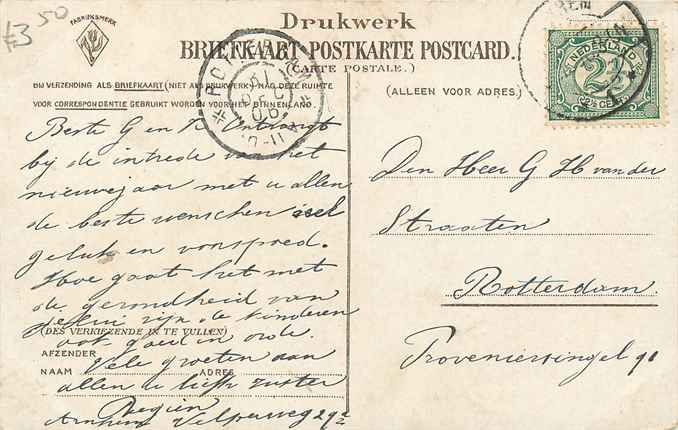 £3 50
FABRIEKSMERK
Drukwerk
BRIEFKAART POSTKARTE POSTCARD.
(CARTE POSTALE.)
BIJ VERZENDING ALS BRIEFKAART (NIET ALS DRUKWERK) MAG DEZE RUIMTE
VOOR CORRESPONDENTIE GEBRUIKT WORDEN VOOR HET BINNENLAND.
(ALLEEN VOOR ADRES.)
NEDERLAND
2½
(2½ CENT)
Beste G en N Ontvangt
bij de intrede van het
nieuwejaar met u allen
de beste wenschen veel
geluk en voorspoed.
Hoe gaat het met
de gezondheid van
zijn de kinderen
ook goed in orde.
(DES VERKIEZENDE IN TE VULLEN)
AFZENDER
NAAM ADRES
Vele groeten aan
allen u liefh zuster
Regien
Arnhem Velperweg 29
Den Heer G H van der
Straaten
Rotterdam.
Provenierssingel 91